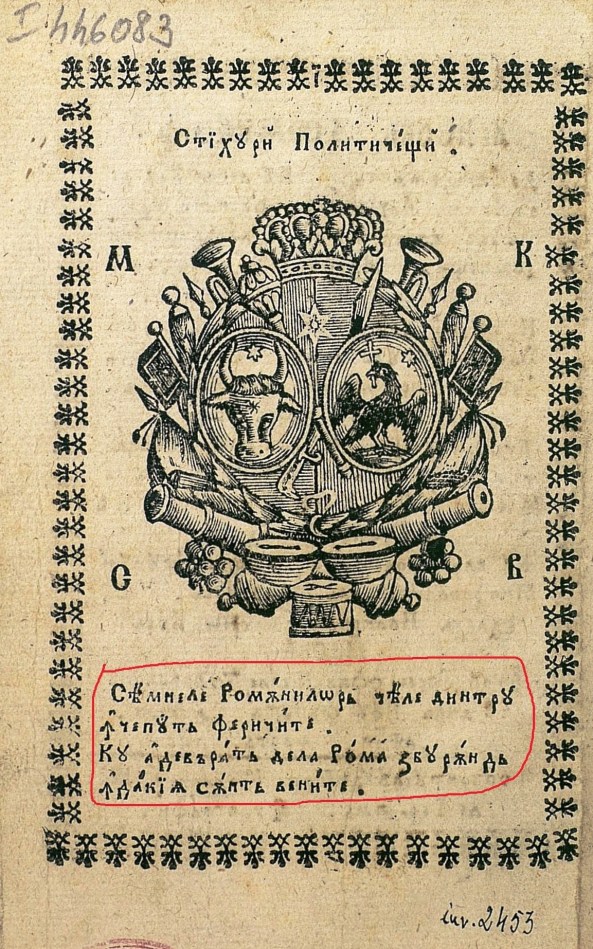 I 446083
Стїхꙋрй Политиче́щй .
М К
С В
Сѣ́мнеле Рома́нилѡрь чѣ́ле динтрꙋ
ꙟ҆чепꙋ́ть феричи́те .
Кꙋ а҆девъра́ть дела Ро́ма збꙋрѫ́ндь
ꙟ҆да́кїѧ сѫ́нть вени́те .
inv. 2453